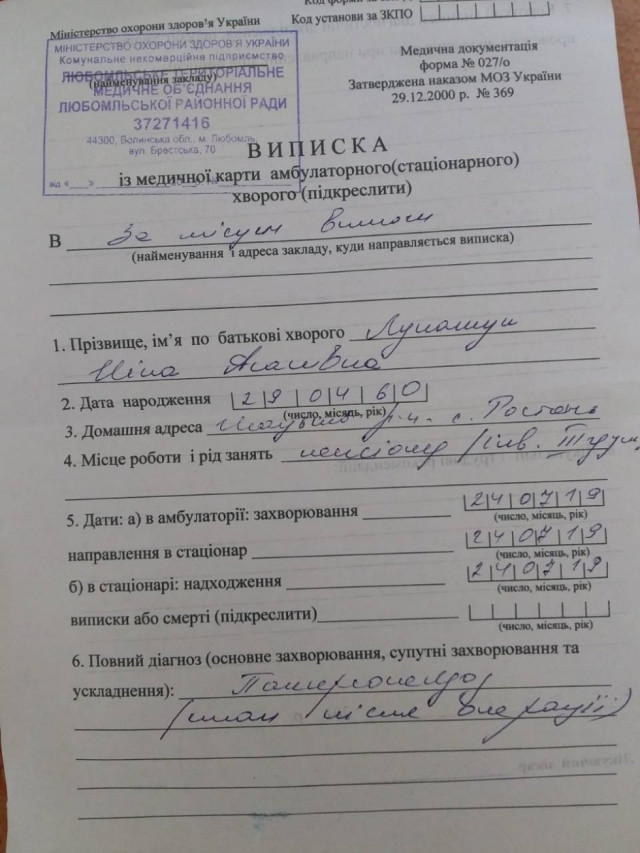 Код форми за
Міністерство охорони здоров'я України
Код установи за ЗКПО
МІНІСТЕРСТВО ОХОРОНИ ЗДОРОВ'Я УКРАЇНИ
Комунальне некомерційне підприємство
(найменування закладу)
ЛЮБОМЛЬСЬКЕ ТЕРИТОРІАЛЬНЕ
МЕДИЧНЕ ОБ'ЄДНАННЯ
ЛЮБОМЛЬСЬКОЇ РАЙОННОЇ РАДИ
37271416
44300, Волинська обл., м. Любомль,
вул. Брестська, 70
від «___»
Медична документація
форма № 027/о
Затверджена наказом МОЗ України
29.12.2000 р. № 369
ВИПИСКА
із медичної карти амбулаторного(стаціонарного)
хворого (підкреслити)
В За місцем вимоги
(найменування і адреса закладу, куди направляється виписка)
1. Прізвище, ім'я по батькові хворого
Ніна
2. Дата народження 290460
(число, місяць, рік)
3. Домашня адреса Шацький р-н. с. Ростань
4. Місце роботи і рід занять
5. Дати: а) в амбулаторії: захворювання 240719
(число, місяць, рік)
направлення в стаціонар 240719
(число, місяць, рік)
б) в стаціонарі: надходження 240719
(число, місяць, рік)
виписки або смерті (підкреслити)
(число, місяць, рік)
6. Повний діагноз (основне захворювання, супутні захворювання та
ускладнення):
(стан після операції)